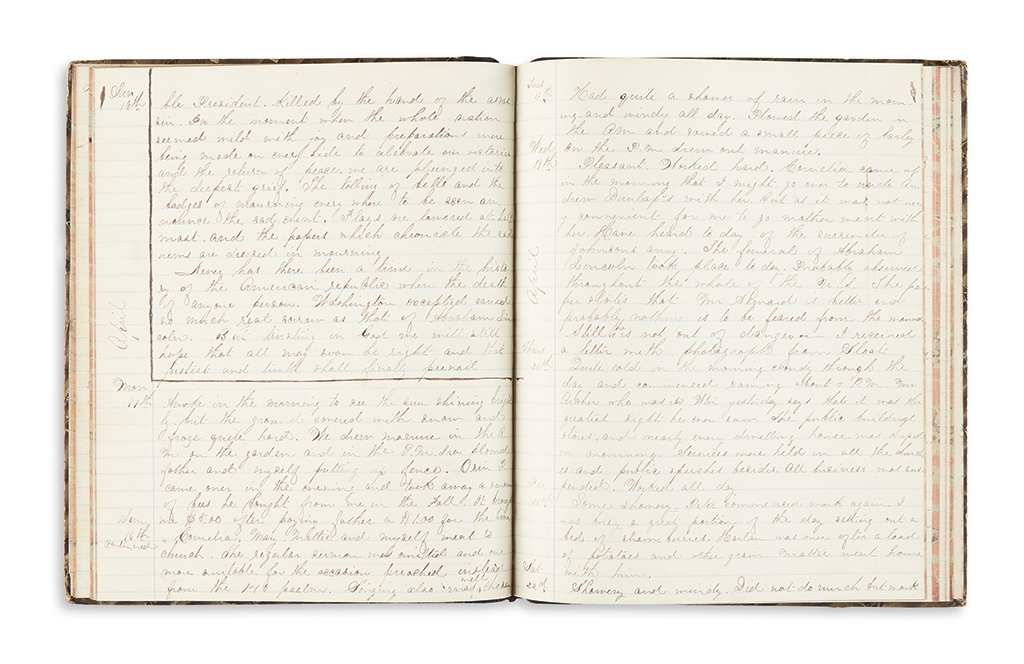 Sun
16th
ble President. Killed by the hand of the assa
sin. In the moment when the whole nation
seemed wild with joy and preparations were
being made on every side to celebrate our victories
and the return of peace. we are plunged into
the deepest grief. The tolling of bells and the
badges of mourning every where to be seen an
nounce the sad event. Flags are lowered at half
mast. and the papers which chronicle the sad
news are dressed in mourning
Never has there been a time in the histo
ry of the American republic where the death
of anyone person. Washington excepted caused
so much real sorrow as that of Abraham Lin
coln. But trusting in God we will still
hope that all may soon be right and that
justice and truth shall finally prevail
April
Mon
17th
Awoke in the morning to see the sun shining bright
ly but the ground covered with snow and
froze quite hard. We drew manure in the A
M on the garden and in the P.M.
father and myself putting up fence. Orin
came over in the evening and took away a
of he bought from me in the Fall. It brings
me $5.00 after paying father $1.00 for the
Sun
16th
continued
Cornelia, Mary, Mattie and myself went to
church. The regular sermon was omitted and one
more suitable for the occasion preached instead
from the 146 psalm. Singing also was well chosen
Tues
18th
Had quite a shower of rain in the morn
ing. and windy all day. Plowed the garden in
the A.M. and sowed a small piece of barley
In the P.M. drew out manure.
Wed
19th
Pleasant. Worked hard. Cornelia came up
in the morning that I might go over to uncle An
drew Dunlap's with her. But as it was not ver
y convenient for me to go mother went with
her. Have heard to day of the surrender of
Johnsons army. The funeral of Abraham
Lincoln took place to day. Probably observed
throughout the whole of the U.S. The pa
per states that Mr Seward is better and
probably nothing is to be feared from the wounds
Still it is not out of danger. I received
a letter with photograph from Sloat
April
Thurs
20th
Quite cold in the morning cloudy through the
day and commenced raining about 2 P.M. Mr
Archer who was in yesterday says that it was the
greatest sight he ever saw. The public buildings
stores. and nearly every dwelling house was draped
in mourning. Services were held in all the church
es and public speeches besides. All business was sus
pended. Worked all day
Fri
21st
Some showery. Peter commenced work again. I
was busy a great portion of the day setting out a
bed of strawberries. Harlan was over after a load
of potatoes and other grain. Mattie went home
with him.
Sat
22nd
Showery and windy. Did not do much but work